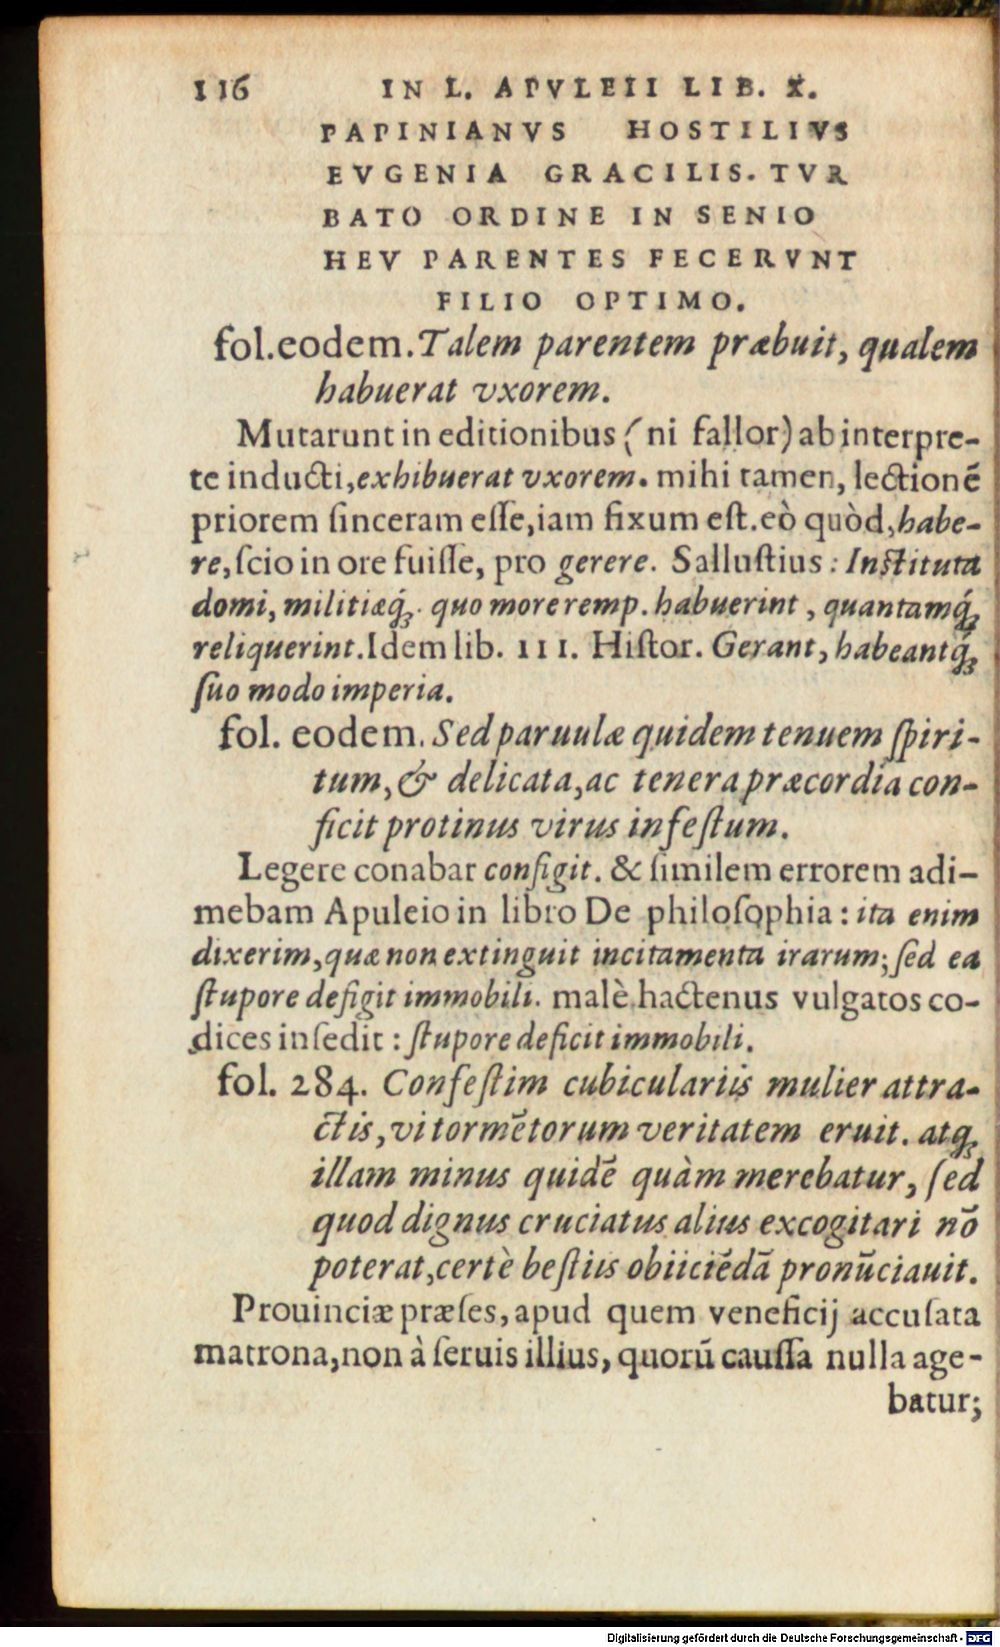 116 IN L. APVLEII LIB. X.
PAPINIANVS HOSTILIVS
EVGENIA GRACILIS. TVR
BATO ORDINE IN SENIO
HEV PARENTES FECERVNT
FILIO OPTIMO.
fol.eodem. Talem parentem præbuit, qualem
habuerat vxorem.
Mutarunt in editionibus (ni fallor) ab interpre-
te inducti, exhibuerat vxorem. mihi tamen, lectionē
priorem ſinceram eſſe, iam fixum eſt. eò quòd, habe-
re, ſcio in ore fuiſſe, pro gerere. Salluſtius: Inſtituta
domi, militiæq́;. quo more remp. habuerint, quantamq́;
reliquerint. Idem lib. III. Hiſtor. Gerant, habeantq́;
ſuo modo imperia.
fol. eodem. Sed paruulæ quidem tenuem ſpiri-
tum, & delicata, ac tenera præcordia con-
ficit protinus virus infeſtum.
Legere conabar configit. & ſimilem errorem adi-
mebam Apuleio in libro De philoſophia: ita enim
dixerim, quæ non extinguit incitamenta irarum; ſed ea
ſtupore defigit immobili. malè hactenus vulgatos co-
dices inſedit: ſtupore deficit immobili.
fol. 284. Confeſtim cubiculariis mulier attra-
ctis, vi tormētorum veritatem eruit. atq;
illam minus quidē quàm merebatur, ſed
quod dignus cruciatus alius excogitari nō
poterat, certè beſtiis obiiciēdā pronūciauit.
Prouinciæ præſes, apud quem veneficij accuſata
matrona, non à ſeruis illius, quorū cauſſa nulla age-
batur;
Digitalisierung gefördert durch die Deutsche Forschungsgemeinschaft - DFG